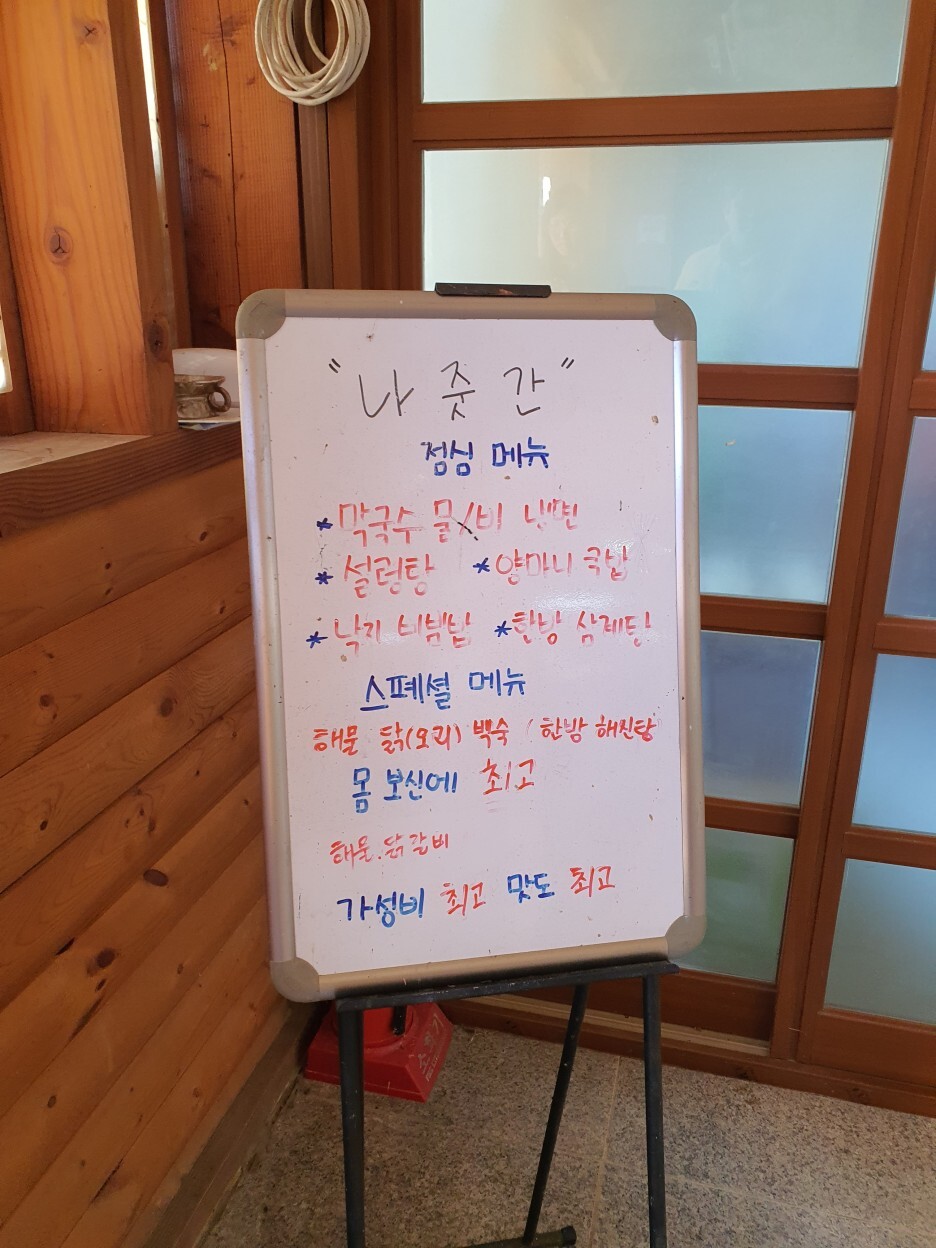 "나줏간"
점심 메뉴
* 막국수 물/비 냉면
* 설렁탕 * 양마니 국밥
* 낙지 비빔밥 * 한방 삼계탕
스폐셜 메뉴
해물 닭(오리) 백숙 (한방 해진탕)
몸 보신에 최고
해물.닭갈비
가성비 최고 맛도 최고
소화기